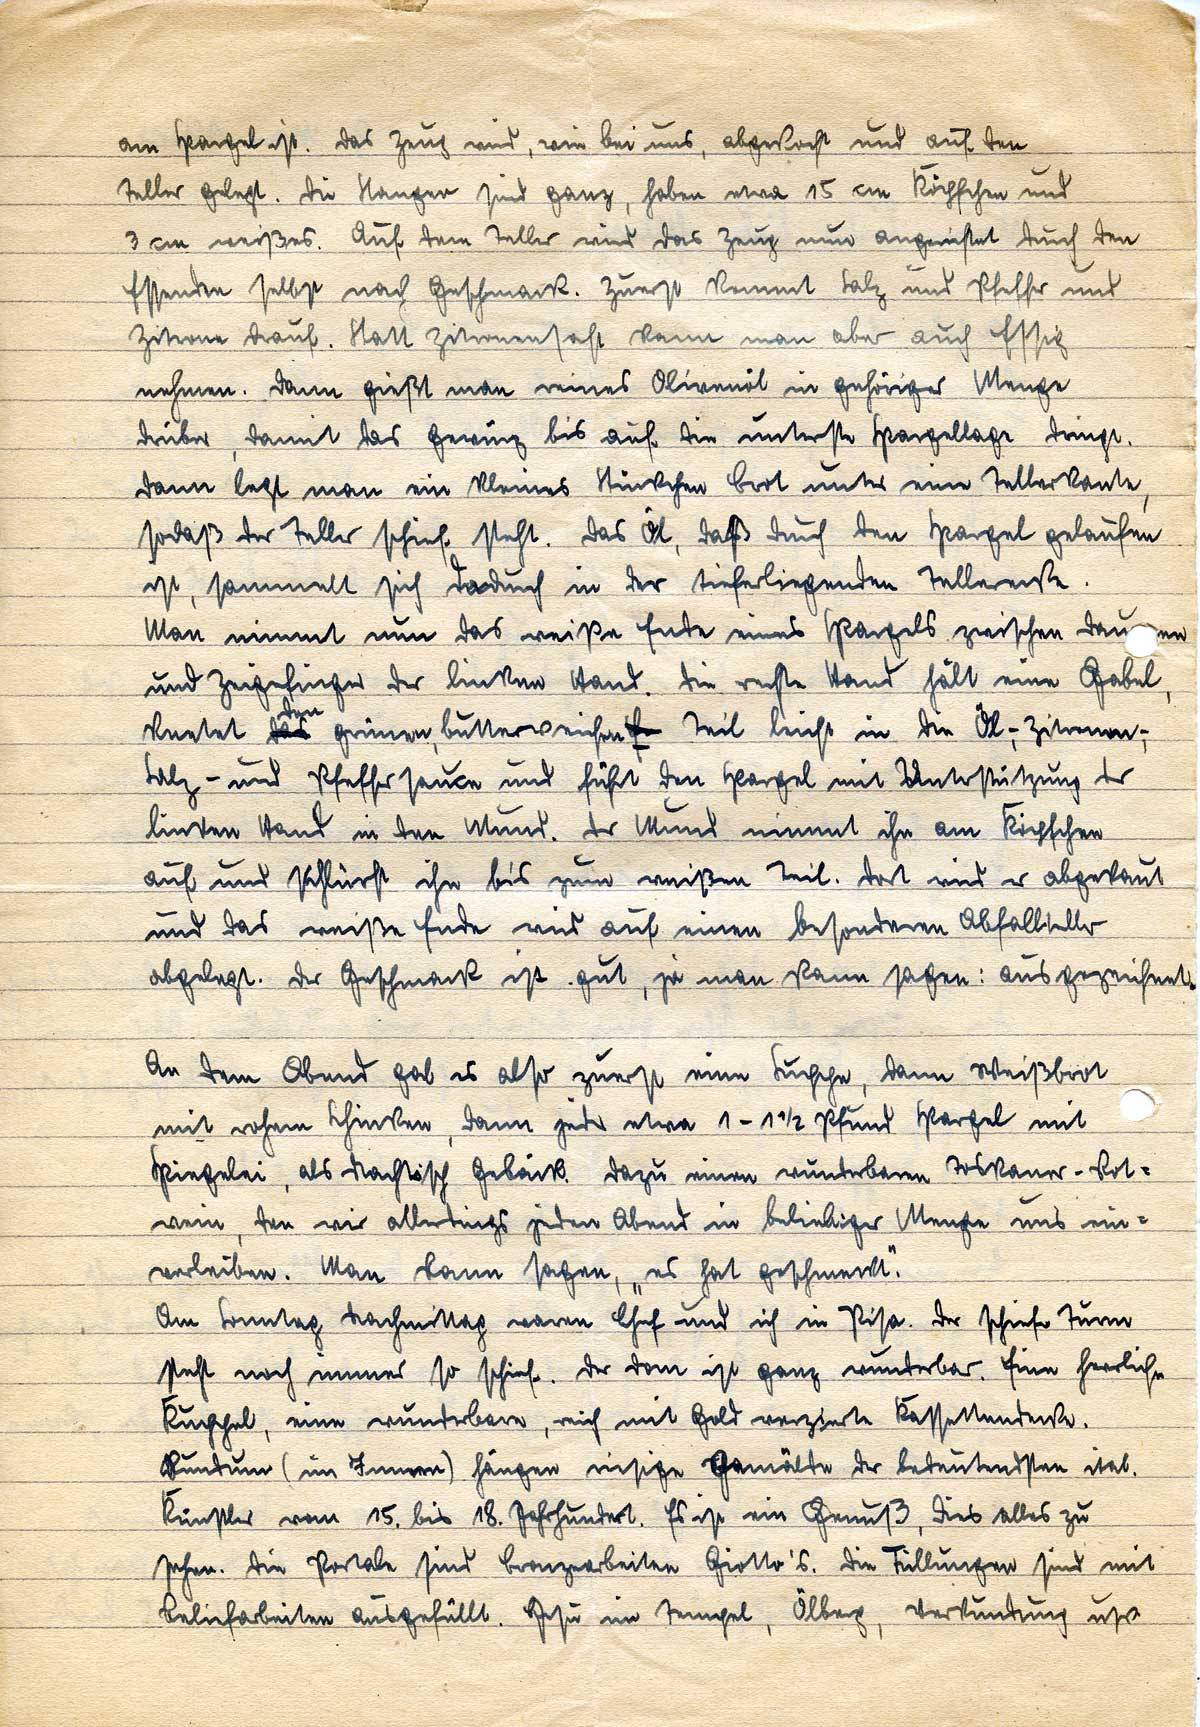 am Spargel ist. Das Zeug wird, wie bei uns, abgekocht und auf den
Teller gelegt. Die Stangen sind ganz, haben etwa 15 cm Köpfchen und
3 cm weißes. Auf dem Teller wird das Zeug nun angerichtet durch den
Essenden selbst nach Geschmack. Zuerst kommt Salz und Pfeffer und
Zitrone drauf. Statt Zitronensaft kann man aber auch Essig
nehmen. Dann gießt man reines Olivenöl in gehöriger Menge
drüber, damit das Gewürz bis auf die unterste Spargellage dringt.
Dann legt man ein kleines Stückchen Brot unter eine Tellerkante,
sodaß der Teller schief steht. Das Öl, daß durch den Spargel gelaufen
ist, sammelt sich dadurch in der tieferliegenden Tellerecke.
Man nimmt nun das weiße Ende eines Spargels zwischen Daumen
und Zeigefinger der linken Hand. Die rechte Hand hält eine Gabel,
knetet den grünen, butterweichen Teil leicht in die Öl-, Zitronen-,
Salz- und Pfeffersauce und führt den Spargel mit Unterstützung der
linken Hand in den Mund. Der Mund nimmt ihn am Köpfchen
auf und schlürft ihn bis zum weißen Teil. Dort wird er abgekaut
und das weiße Ende wird auf einen besonderen Abfallteller
abgelegt. Der Geschmack ist gut, ja man kann sagen: ausgezeichnet.
An dem Abend gab es also zuerst eine Suppe, dann Weißbrot
mit rohem Schinken, dann jeder etwa 1 - 1 1/2 Pfund Spargel mit
Spiegelei, als Nachtisch Gebäck. Dazu einen wunderbaren Toskaner-Rot=
wein, den wir allerdings jeden Abend in beliebiger Menge uns ein=
verleiben. Man kann sagen, „es hat geschmeckt".
Am Sonntag Nachmittag waren Chef und ich in Pisa. Der schiefe Turm
steht noch immer so schief. Der Dom ist ganz wunderbar. Eine herrliche
Kuppel, eine wunderbare, reich mit Gold verzierte Kassettendecke.
Rundum (im Innern) hängen riesige Gemälde der bedeutendsten ital.
Künstler vom 15. bis 18. Jahrhundert. Es ist ein Genuß, dies alles zu
sehen. Die Portale sind Bronzearbeiten Giotto's. Die Füllungen sind mit
Reliefarbeiten ausgefüllt. Jesu im Tempel, Ölberg, Verkündung usw